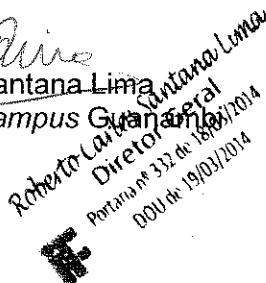 antana Lima
ampus Guanambi
Roberto Carlos Santana Lima
Diretor Geral
Portaria nº 332 de 18/03/2014
DOU de 19/03/2014